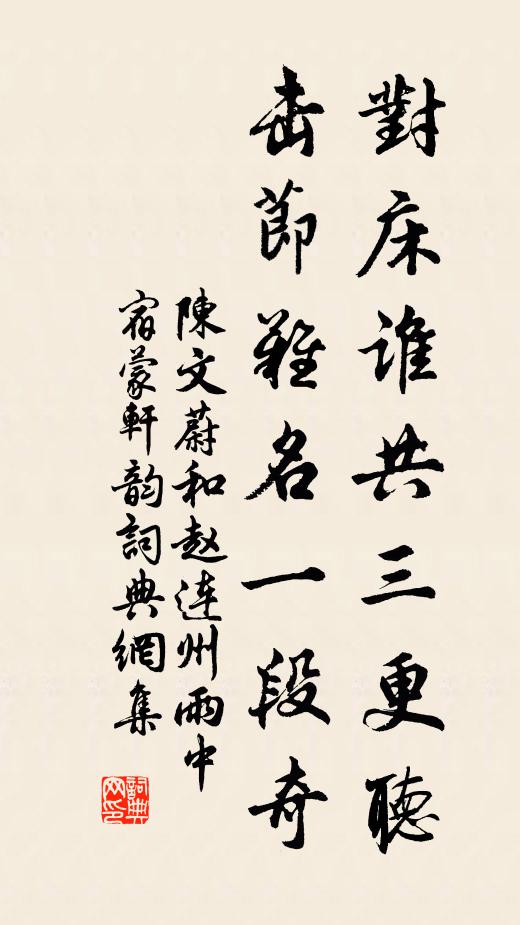 對床谁共三更聽
击節難名一段奇
陳文蔚和赵连州雨中
宿蒙軒韵詞典網集
詞典網印